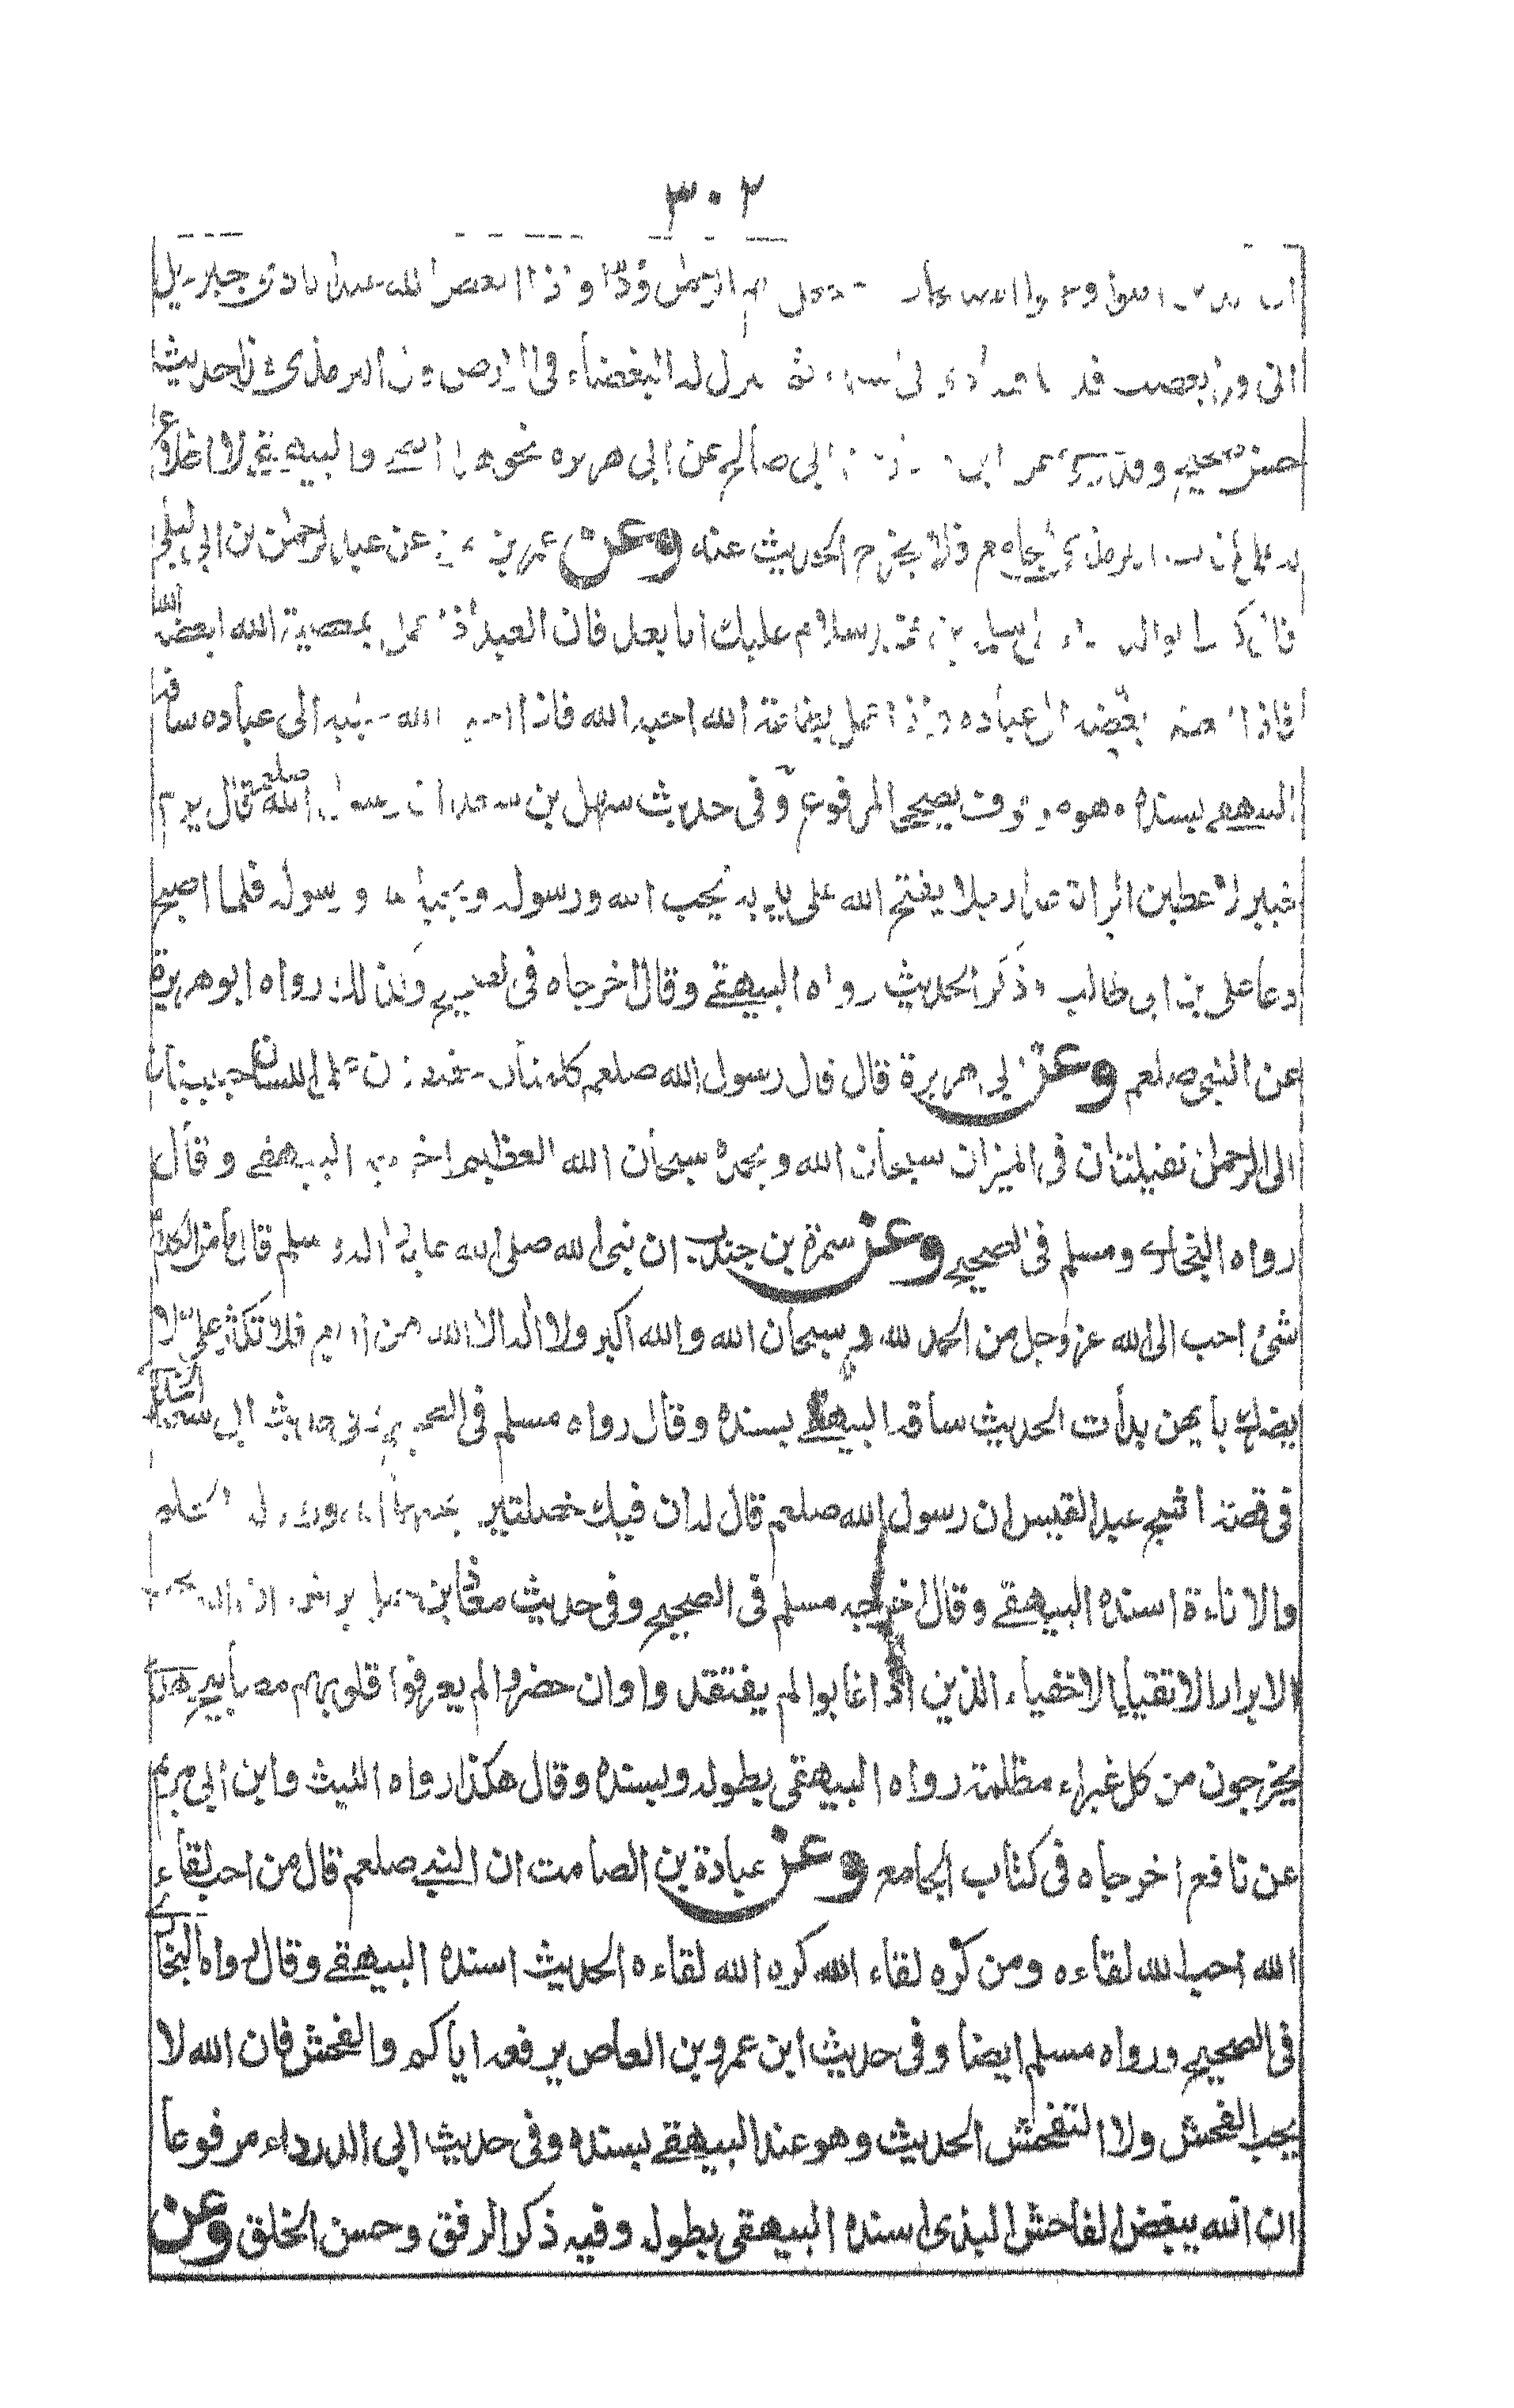 ٣٠٢
ان الذين امنوا وعملوا الصالحات سيجعل لهم الرحمن ودّا واذا ابغض الله عبدا نادى جبريل
انى قد ابغضت فلانا فينادى فى السماء ثم ينزل له البغضاء فى الارض الترمذى حديث
حسن صحيح وقد عن ابى صالح عن ابى هريرة نحو هذا والبيهقى
الترمذى الحديث عنه وعن عن عبد الرحمن بن ابى ليلى
قال كتب ابو الدرداء الى سلام عليك اما بعد فان العبد اذا عمل بمعصية الله ابغضه الله
فاذا ابغضه بغضه الى عباده واذا عمل بطاعة الله احبه الله فاذا احبه الله حببه الى عباده ساقه
البيهقى بسنده وهو موقوف المرفوع وفى حديث سهل بن سعد ان رسول الله صلعم قال يوم
خيبر لاعطين الراية غدا رجلا يفتح الله على يديه يحب الله ورسوله ويحبه الله ورسوله فلما اصبح
دعا على بن ابى طالب وذكر الحديث رواه البيهقى وقال اخرجاه فى الصحيح وكذلك رواه ابوهريرة
عن النبى صلعم وعن ابى هريرة قال قال رسول الله صلعم كلمتان خفيفتان على اللسان حبيبتان
الى الرحمن ثقيلتان فى الميزان سبحان الله وبحمده سبحان الله العظيم اخرجه البيهقى وقال
رواه البخارى ومسلم فى الصحيح وعن سمرة بن جندب ان نبى الله صلى الله عليه وسلم قال ما من الكلام
شئ احب الى الله عز وجل من الحمد لله وسبحان الله والله اكبر ولا اله الا الله فلا تكثر على لا
يضرك بايهن بدأت الحديث ساقه البيهقى بسنده وقال رواه مسلم فى الصحيح وفى حديث ابى سعيد
فى قصة اشج عبد القيس ان رسول الله صلعم قال له ان فيك خصلتين يحبهما الله ورسوله الحلم
والاناءة اسنده البيهقى وقال اخرجه مسلم فى الصحيح وفى حديث معاذ بن جبل يرفعه ان الله يحب
الابرار الاتقياء الاخفياء الذين اذا غابوا لم يفتقدوا وان حضروا لم يعرفوا قلوبهم مصابيح الهدى
يخرجون من كل غبراء مظلمة رواه البيهقى بطوله وبسنده وقال هكذا رواه الليث وابن ابى مريم
عن نافع اخرجاه فى كتاب الجامع وعن عبادة بن الصامت ان النبى صلعم قال من احب لقاء
الله احب الله لقاءه ومن كره لقاء الله كره الله لقاءه الحديث اسنده البيهقى وقال رواه البخارى
فى الصحيح ورواه مسلم ايضا وفى حديث ابن عمرو بن العاص يرفعه اياكم والفحش فان الله لا
يحب الفحش ولا التفحش الحديث وهو عند البيهقى بسنده وفى حديث ابى الدرداء مرفوعا
ان الله يبغض الفاحش البذى اسنده البيهقى بطوله وفيه ذكر الرفق وحسن الخلق وعن